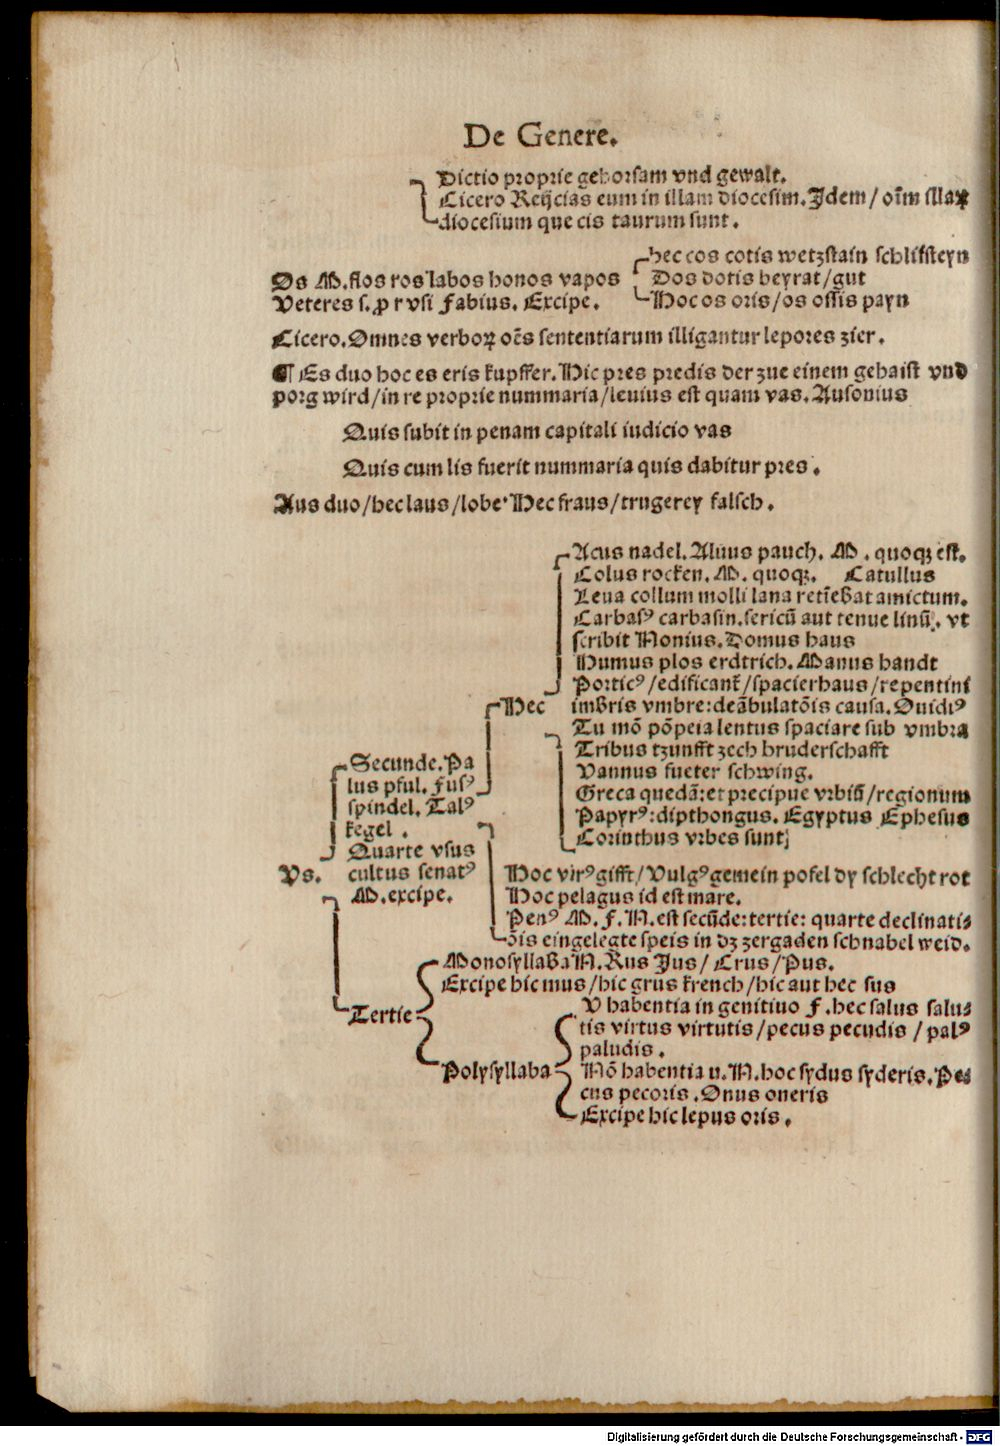 De Genere.
Dictio proprie gehorsam vnd gewalt.
Cicero Reijcias eum in illam diocesim. Idem / oīm illaꝝ
diocesium que cis taurum sunt.
hec cos cotis wetzstain schlifsteyn
Os M. flos ros labos honos vapos
Dos dotis heyrat/gut
Veteres s. ꝓ r vsi Fabius. Excipe.
Hoc os oris/os ossis payn
Cicero. Omnes verboꝝ oēs sententiarum illigantur lepores zier.
¶ Es duo hoc es eris kupffer. Hic pres predis der zue einem gehaist vnd
porg wird/in re proprie nummaria/leuius est quam vas. Ausonius
Quis subit in penam capitali iudicio vas
Quis cum lis fuerit nummaria quis dabitur pres.
Aus duo/hec laus/lobe Hec fraus/trugerey falsch.
Acus nadel. Aluus pauch. M. quoqꝫ est.
Colus rocken. M. quoqꝫ. Catullus
Leua collum molli lana retīebat amictum.
Carbasꝰ carbasin. sericū aut tenue linū. vt
scribit Nonius. Domus haus
Humus plos erdtrich. Manus handt
Porticꝰ/edificank̄/spacierhaus/repentini
Hec imbris vmbre: deābulatōis causa. Ouidiꝰ
Tu mō pōpeia lentus spaciare sub vmbra
Tribus tzunfft zech bruderschafft
Secunde. Pa
Vannus fueter schwing.
lus pful. Fusꝰ
Greca quedā: et precipue vrbiū/regionum
spindel. Talꝰ
Papyrꝰ: dipthongus. Egyptus Ephesus
kegel.
Corinthus vrbes sunt;
Quarte vsus
Vs. cultus senatꝰ
Hoc virꝰ gifft/Vulgꝰ gemein pofel dy schlecht rot
M. excipe.
Hoc pelagus id est mare.
Penꝰ M. F. N. est secūde: tertie: quarte declinati⸗
ōis eingelegte speis in dz zergaden schnabel weid.
Monosyllaba N. Rus Ius/ Crus/Pus.
Excipe hic mus/hic grus krench/hic aut hec sus
V habentia in genitiuo F. hec salus salu⸗
Tertie
tis virtus virtutis/pecus pecudis / palꝰ
paludis.
Polysyllaba
Nō habentia u. N. hoc sydus syderis. Pe⸗
cus pecoris. Onus oneris
Excipe hic lepus oris.
Digitalisierung gefördert durch die Deutsche Forschungsgemeinschaft - DFG